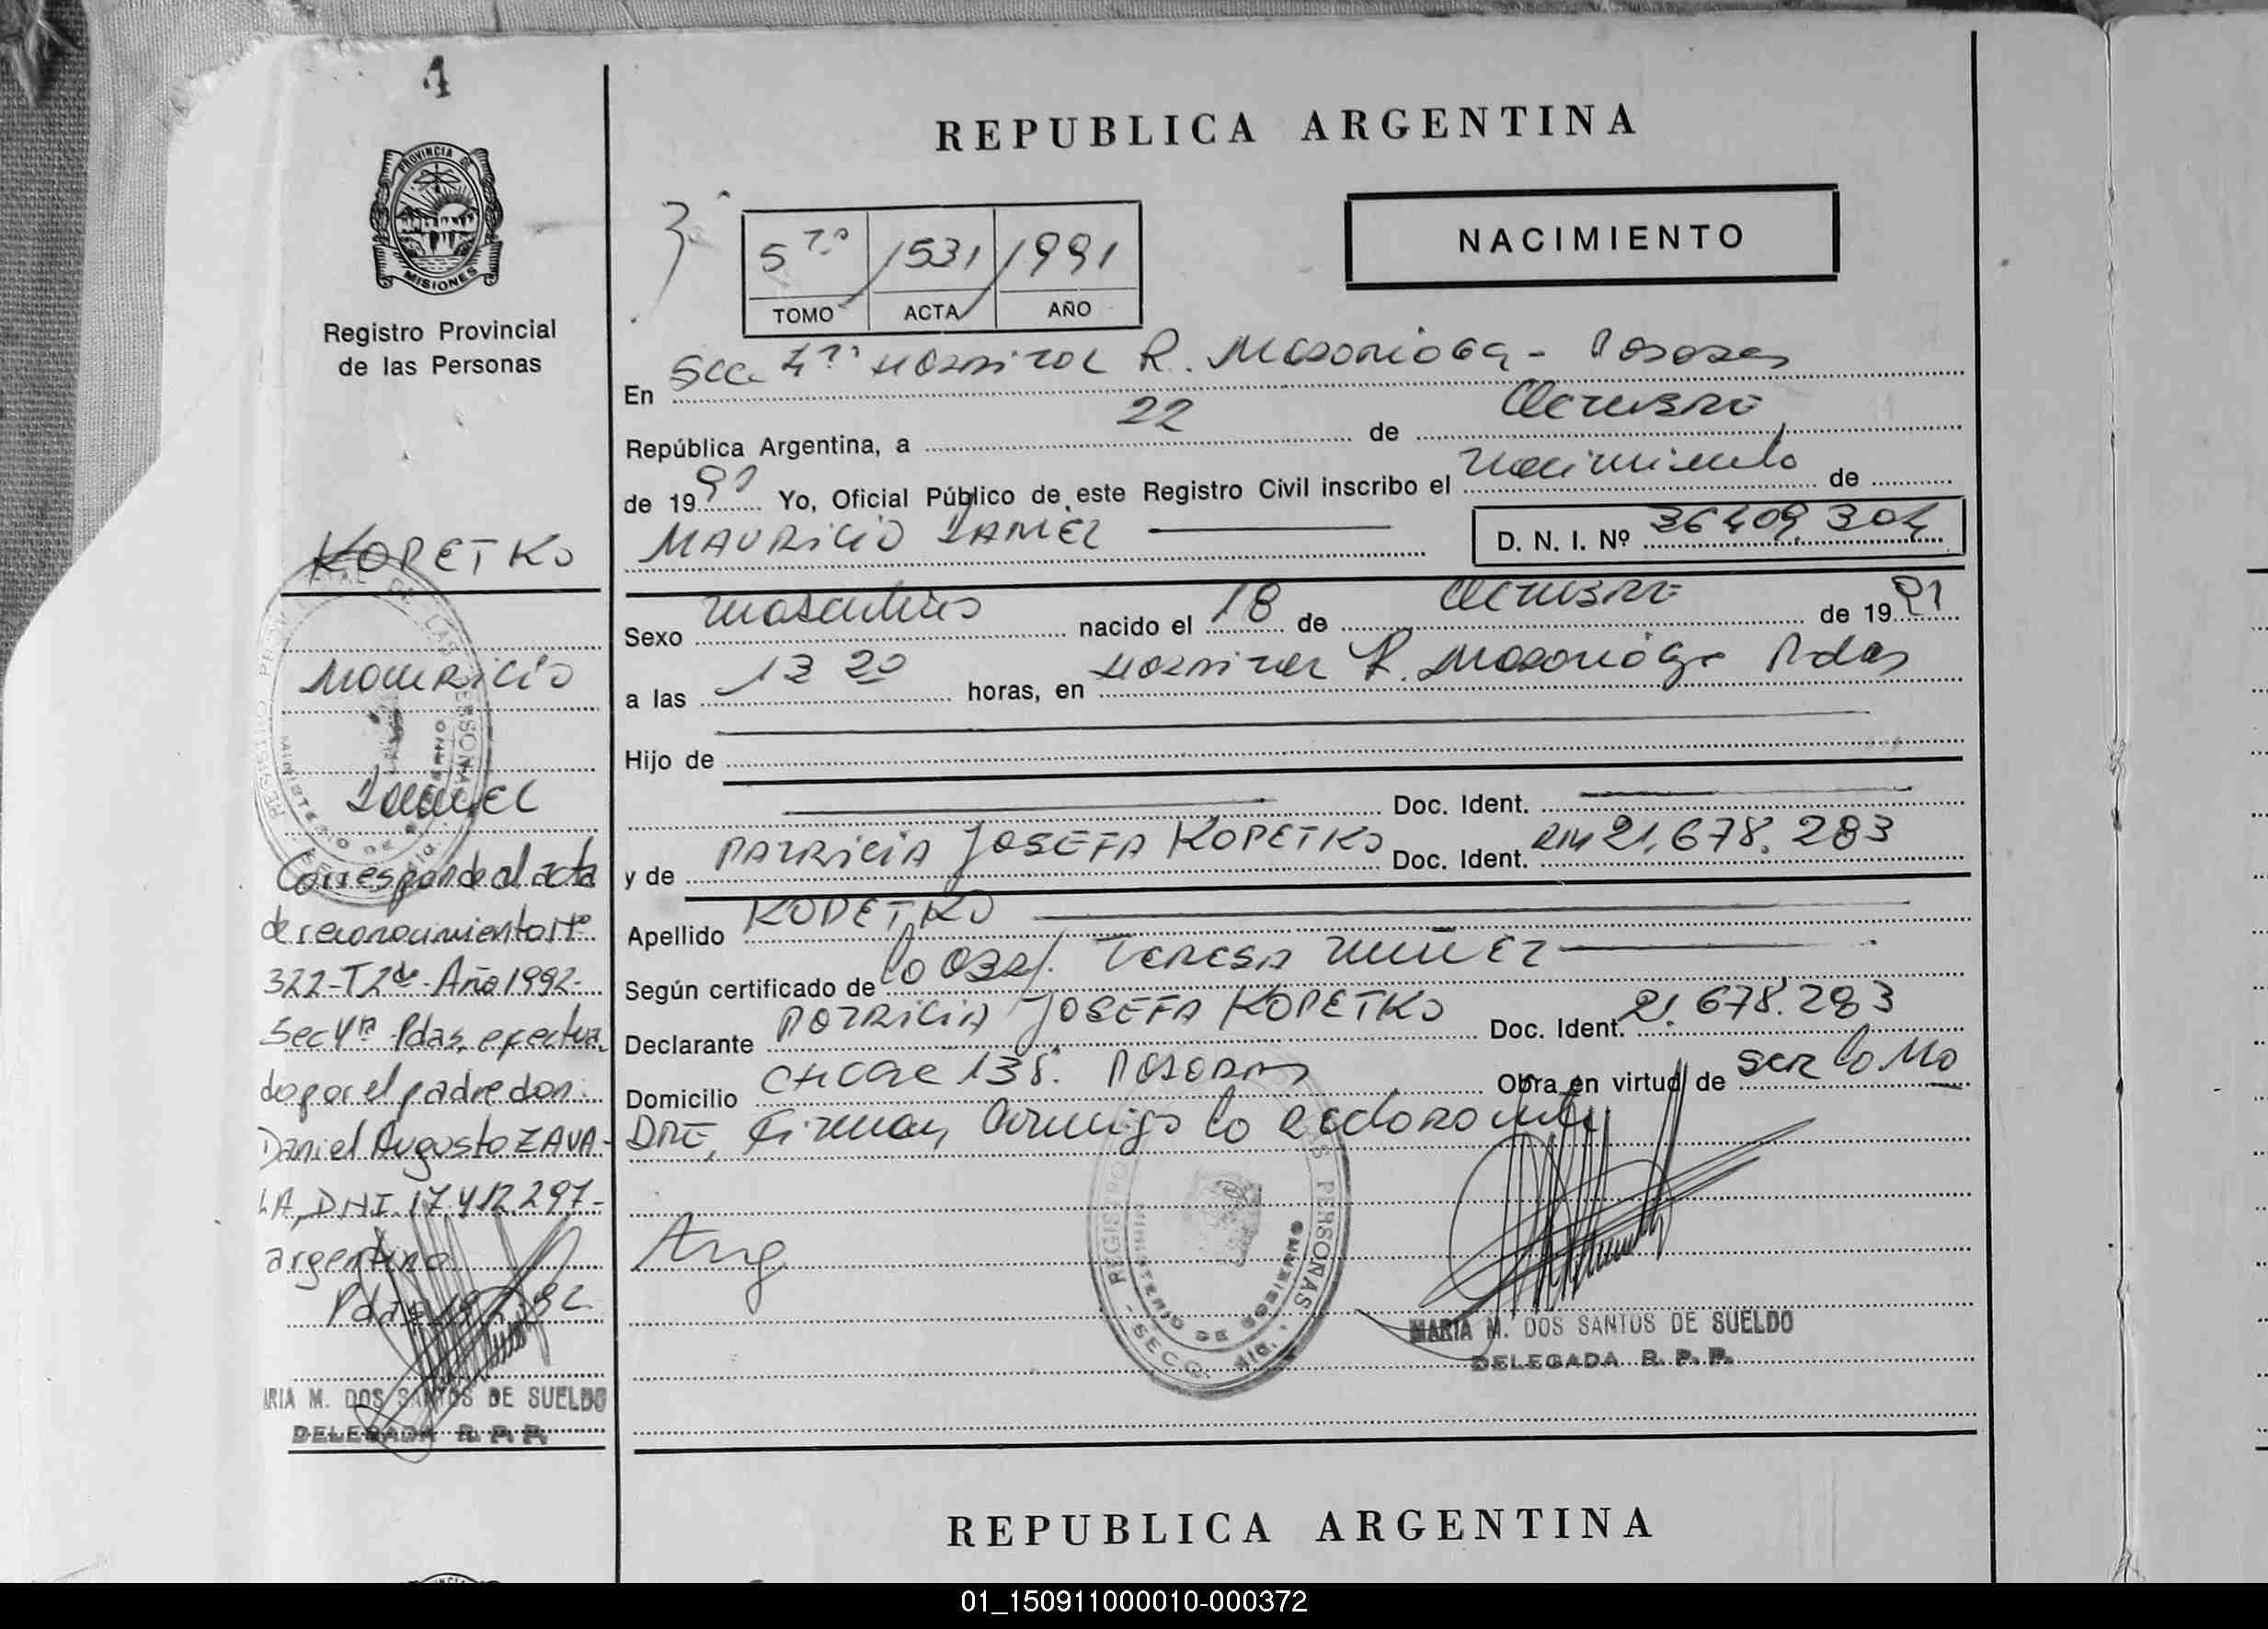 1
PROVINCIA DE
MISIONES
Registro Provincial
de las Personas
KOPETKO
Mauricio
Daniel
Corresponde al acta
de reconocimiento Nº
322-T2do-Año 1992-
Sec 4ta Pdas, efectua
do por el padre don:
Daniel Augusto ZAVA-
LA, DNI. 17.412.297-
argentino
Pdas
ARIA M. DOS SANTOS DE SUELDO
DELEGADA R. P. P.
REPUBLICA ARGENTINA
3ª
5to 1531 1991
TOMO ACTA AÑO
NACIMIENTO
En Secc 4ta Hospital R. Madariaga - Posadas
República Argentina, a 22 de Octubre
de 1991 Yo, Oficial Público de este Registro Civil inscribo el Nacimiento de
MAURICIO DANIEL D. N. I. Nº 36.409.304
Sexo masculino nacido el 18 de Octubre de 1991
a las 13 20 horas, en Hospital R. Madariaga Pdas
Hijo de
Doc. Ident.
y de PATRICIA JOSEFA KOPETKO Doc. Ident. DNI 21.678.283
Apellido KOPETKO
Según certificado de la Obst. TERESA NUÑEZ
Declarante PATRICIA JOSEFA KOPETKO Doc. Ident. 21.678.283
Domicilio 138. POSADAS Obra en virtud de ser la MA
DRE, Firman conmigo la declarante
REGISTRO PERSONAS
MINISTERIO DE GOBIERNO
SECC. 4ta.
MARIA M. DOS SANTOS DE SUELDO
DELEGADA R. P. P.
REPUBLICA ARGENTINA
01_150911000010-000372